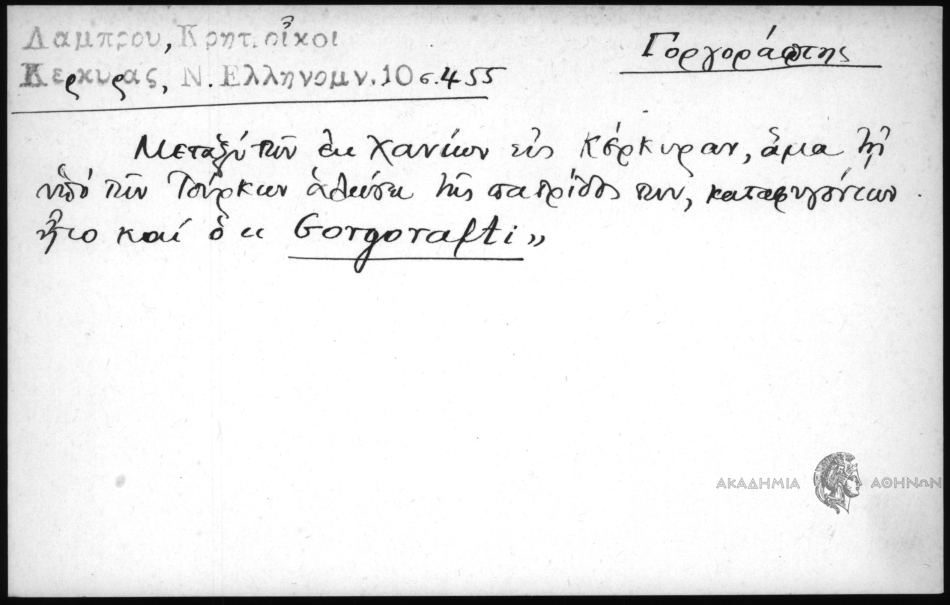 Λαμπρου, Κρητ. οἶκοι
Κερκυρας, Ν. Ελληνομν. 10 σ. 455
Γοργοράπτης
Μεταξύ τῶν ἐκ Χανίων εἰς Κέρκυραν, ἅμα τῇ
ὑπό τῶν Τούρκων ἁλώσει τῆς πατρίδος των, καταφυγόντων
ἦτο καί ὁ κ Gorgorafti»
ΑΚΑΔΗΜΙΑ ΑΘΗΝΩΝ